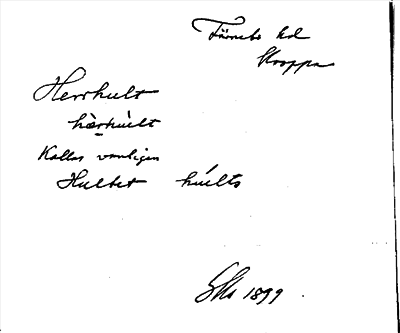 Färnebo hd
Kroppa
Herrhult
hærhult
Kallas vanligen
Hultet húlts
1899